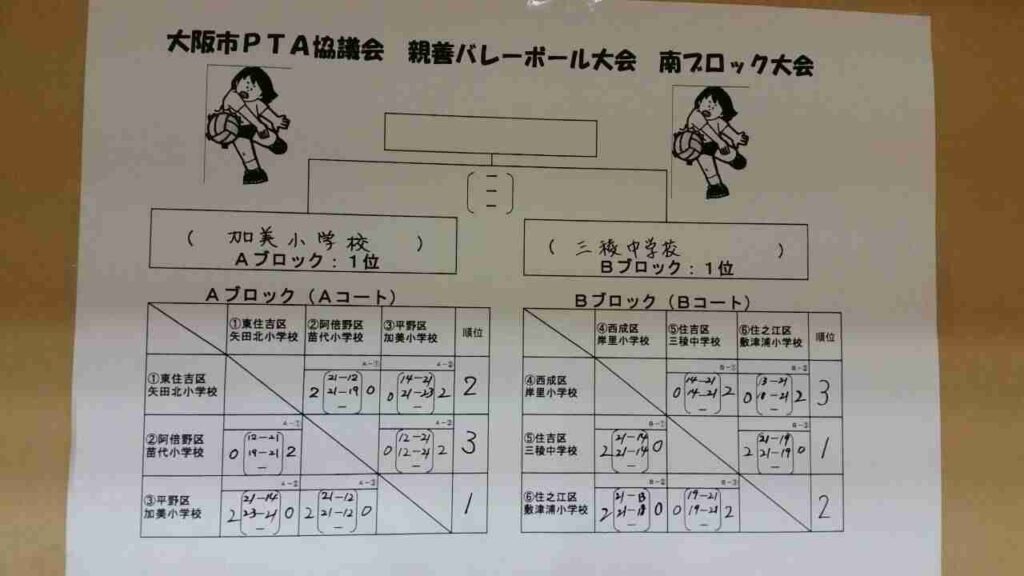 大阪市ＰＴＡ協議会　親善バレーボール大会　南ブロック大会
( 加美小学校 )
Ａブロック：１位
( 三稜中学校 )
Ｂブロック：１位
Ａブロック（Ａコート）
①東住吉区 矢田北小学校 ②阿倍野区 苗代小学校 ③平野区 加美小学校 順位
①東住吉区 矢田北小学校 2 (21-12 21-19 -) 0 0 (14-21 21-23 -) 2 2
②阿倍野区 苗代小学校 0 (12-21 19-21 -) 2 0 (12-21 12-21 -) 2 3
③平野区 加美小学校 2 (21-14 23-21 -) 0 2 (21-12 21-12 -) 0 1
Ｂブロック（Ｂコート）
④西成区 岸里小学校 ⑤住吉区 三稜中学校 ⑥住之江区 敷津浦小学校 順位
④西成区 岸里小学校 0 (14-21 14-21 -) 2 0 (13-21 18-21 -) 2 3
⑤住吉区 三稜中学校 2 (21-14 21-14 -) 0 2 (21-19 21-19 -) 0 1
⑥住之江区 敷津浦小学校 2 (21-13 21-18 -) 0 0 (19-21 19-21 -) 2 2